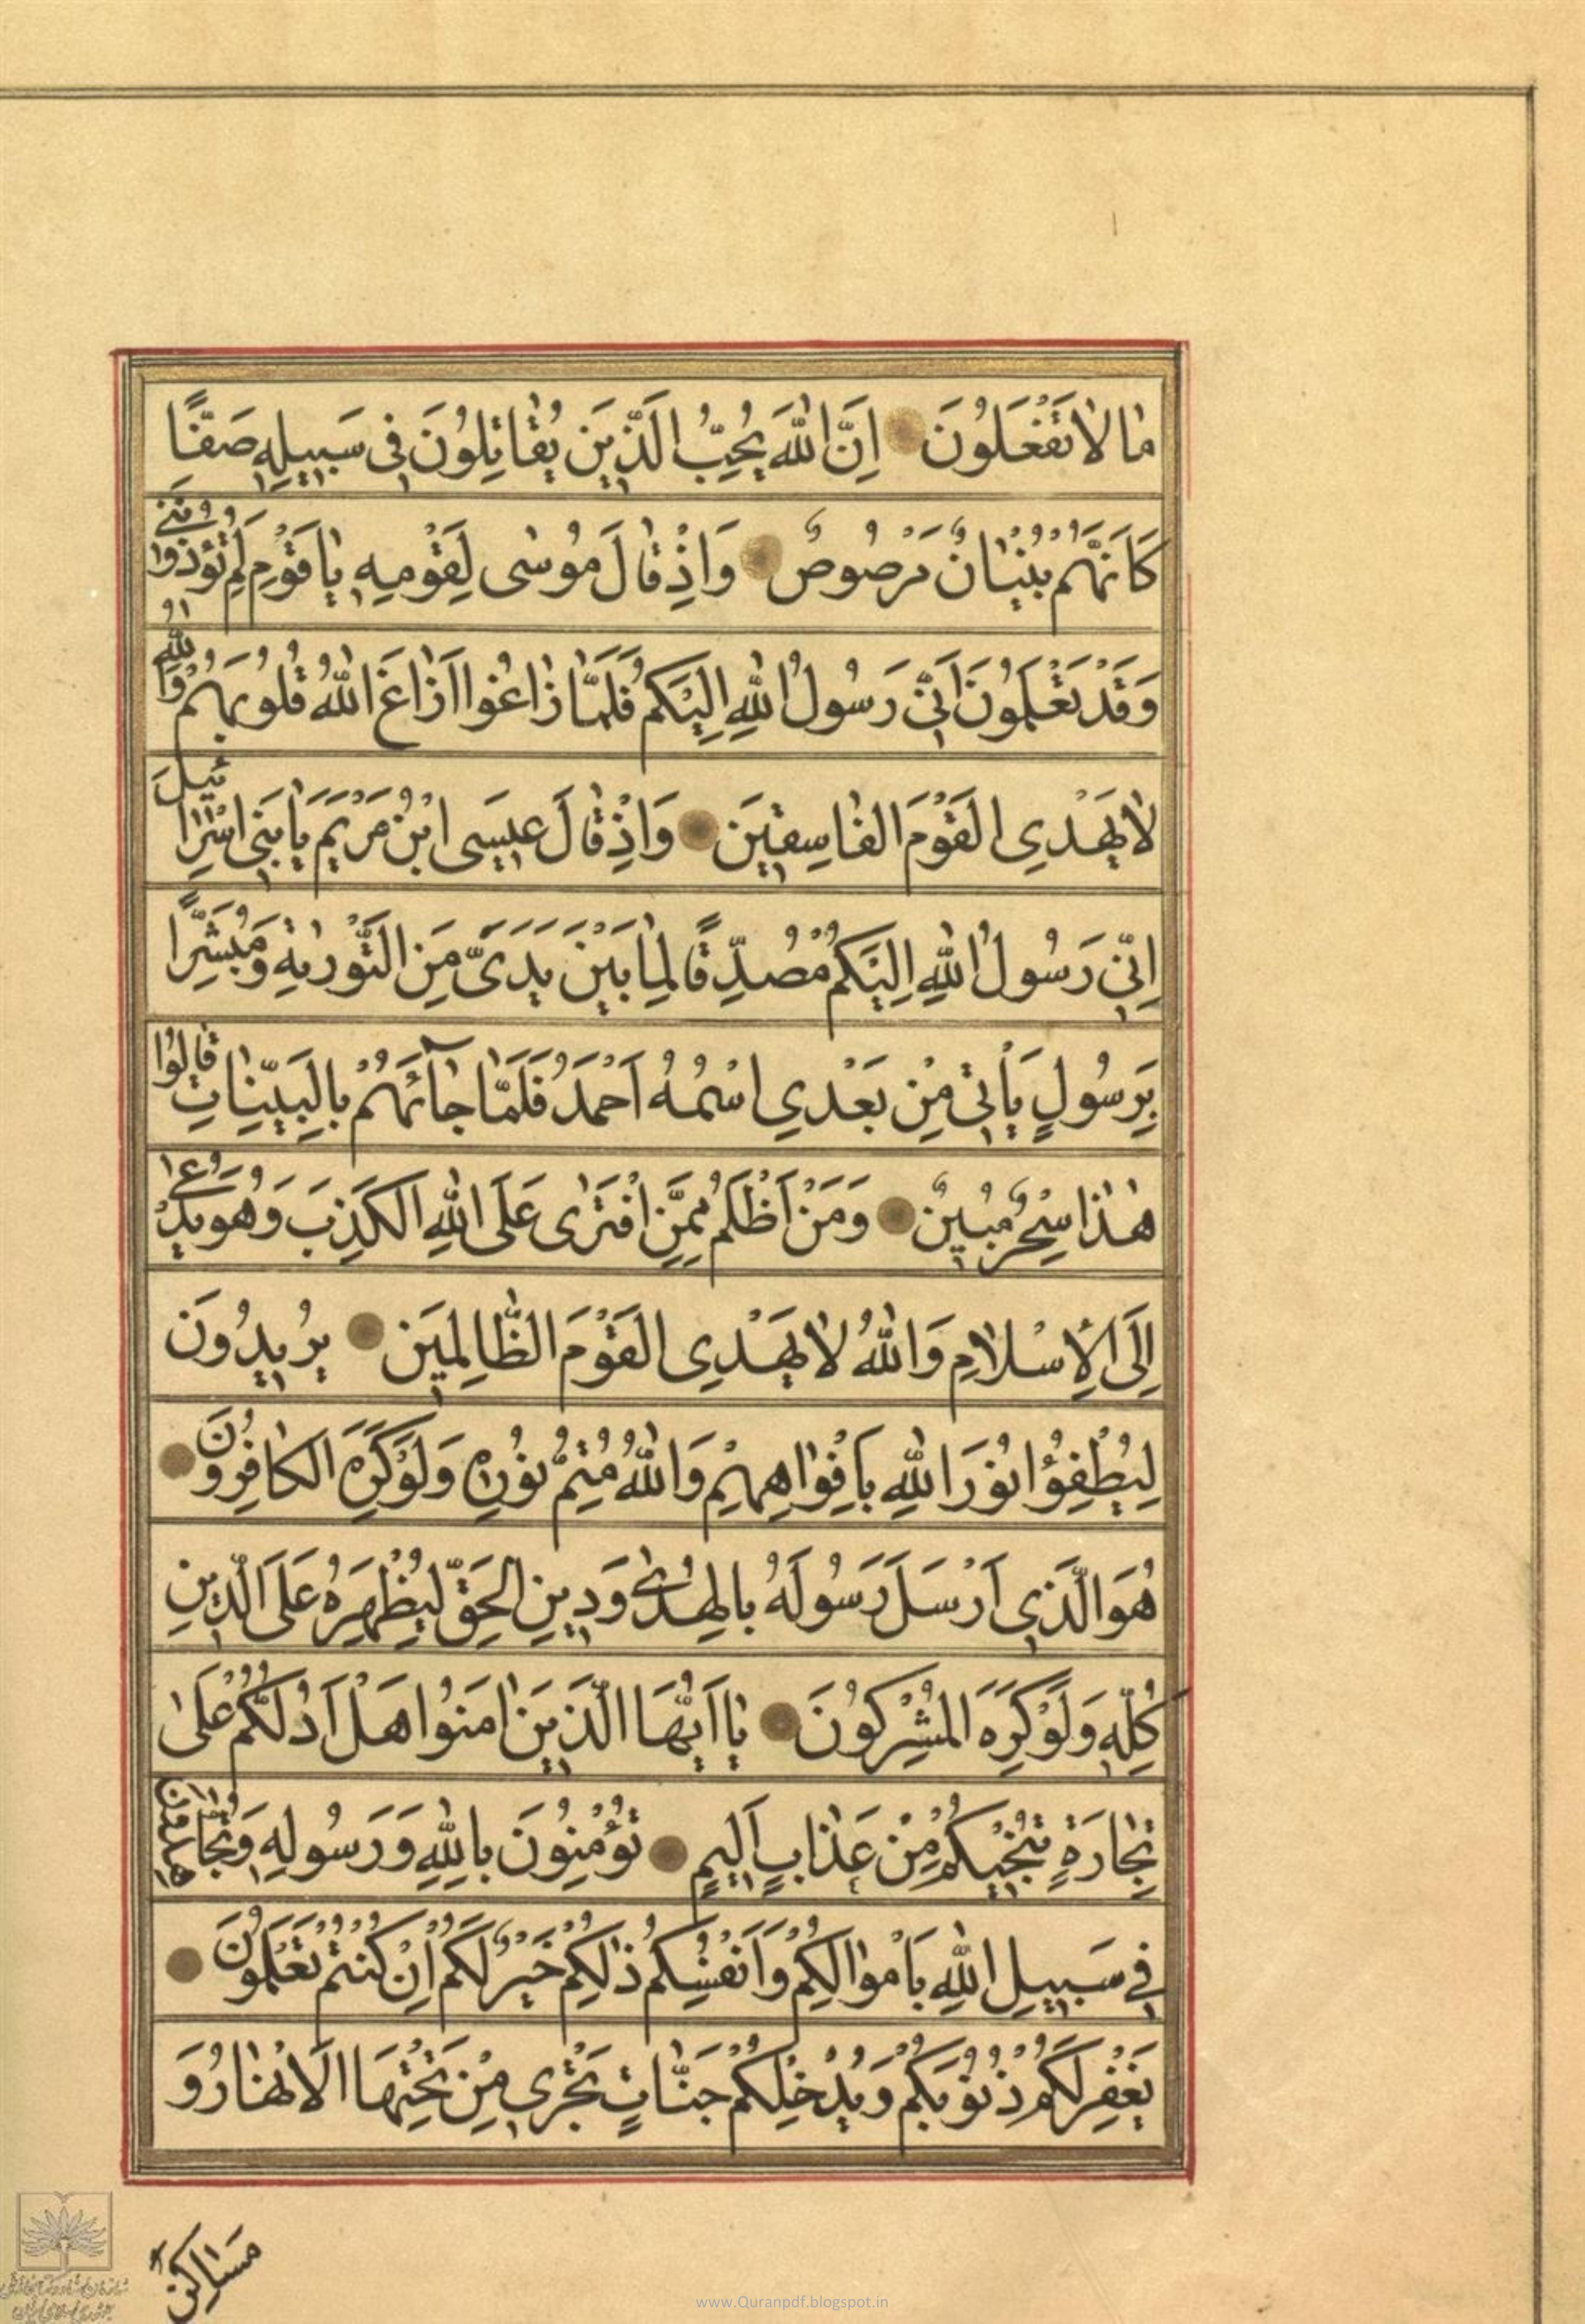 مٰا لاٰ تَفْعَلُونَ اِنَّ اللّٰهَ يُحِبُّ الَّذِينَ يُقٰاتِلُونَ فِى سَبِيلِهِ صَفًّا
كَاَنَّهُمْ بُنْيٰانٌ مَرْصُوصٌ وَاِذْ قٰالَ مُوسٰى لِقَوْمِهِ يٰا قَوْمِ لِمَ تُؤْذُونَنِى
وَقَدْ تَعْلَمُونَ اَنِّى رَسُولُ اللّٰهِ اِلَيْكُمْ فَلَمّٰا زٰاغُوا اَزٰاغَ اللّٰهُ قُلُوبَهُمْ وَاللّٰهُ
لاٰ يَهْدِى الْقَوْمَ الْفٰاسِقِينَ وَاِذْ قٰالَ عِيسَى ابْنُ مَرْيَمَ يٰا بَنِى اِسْرٰائِيلَ
اِنِّى رَسُولُ اللّٰهِ اِلَيْكُمْ مُصَدِّقًا لِمٰا بَيْنَ يَدَىَّ مِنَ التَّوْرٰيةِ وَمُبَشِّرًا
بِرَسُولٍ يَأْتِى مِنْ بَعْدِى اسْمُهُ اَحْمَدُ فَلَمّٰا جٰآئَهُمْ بِالْبَيِّنٰاتِ قٰالُوا
هٰذٰا سِحْرٌ مُبِينٌ وَمَنْ اَظْلَمُ مِمَّنِ افْتَرٰى عَلَى اللّٰهِ الْكَذِبَ وَهُوَ يُدْعٰى
اِلَى الْاِسْلاٰمِ وَاللّٰهُ لاٰ يَهْدِى الْقَوْمَ الظّٰالِمِينَ يُرِيدُونَ
لِيُطْفِؤُا نُورَ اللّٰهِ بِاَفْوٰاهِهِمْ وَاللّٰهُ مُتِمُّ نُورِهِ وَلَوْ كَرِهَ الْكٰافِرُونَ
هُوَ الَّذِى اَرْسَلَ رَسُولَهُ بِالْهُدٰى وَدِينِ الْحَقِّ لِيُظْهِرَهُ عَلَى الدِّينِ
كُلِّهِ وَلَوْ كَرِهَ الْمُشْرِكُونَ يٰا اَيُّهَا الَّذِينَ اٰمَنُوا هَلْ اَدُلُّكُمْ عَلٰى
تِجٰارَةٍ تُنْجِيكُمْ مِنْ عَذٰابٍ اَلِيمٍ تُؤْمِنُونَ بِاللّٰهِ وَرَسُولِهِ وَتُجٰاهِدُونَ
فِى سَبِيلِ اللّٰهِ بِاَمْوٰالِكُمْ وَاَنْفُسِكُمْ ذٰلِكُمْ خَيْرٌ لَكُمْ اِنْ كُنْتُمْ تَعْلَمُونَ
يَغْفِرْ لَكُمْ ذُنُوبَكُمْ وَيُدْخِلْكُمْ جَنّٰاتٍ تَجْرِى مِنْ تَحْتِهَا الْاَنْهٰارُ وَ
مَسٰاكِنَ
www.Quranpdf.blogspot.in